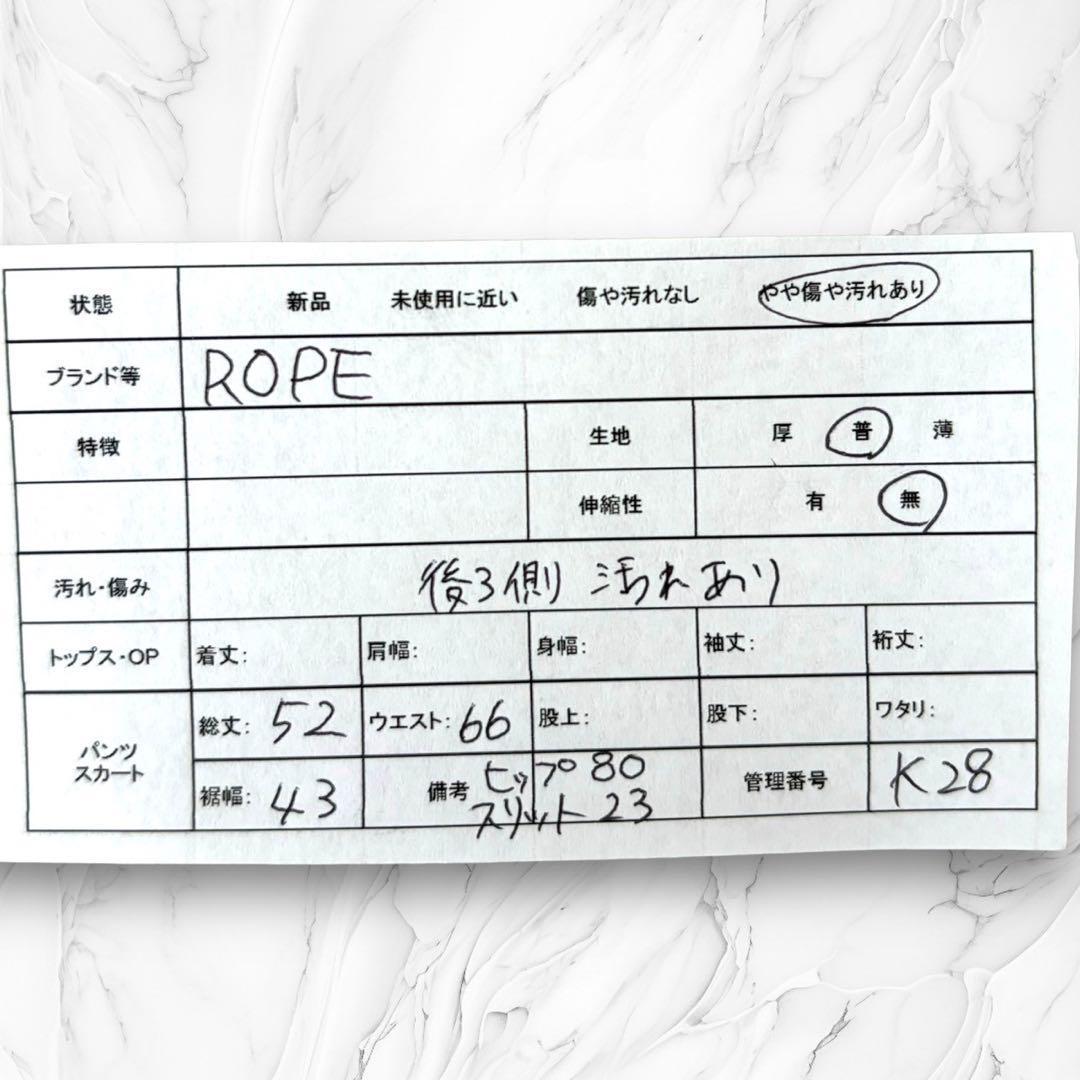 状態 新品 未使用に近い 傷や汚れなし やや傷や汚れあり
ブランド等 ROPE
特徴 生地 厚 普 薄
伸縮性 有 無
汚れ・傷み 後ろ側 汚れあり
トップス・OP 着丈: 肩幅: 身幅: 袖丈: 裄丈:
パンツ
スカート
総丈: 52 ウエスト: 66 股上: 股下: ワタリ:
裾幅: 43 備考 ヒップ 80 管理番号 K28
スリット 23